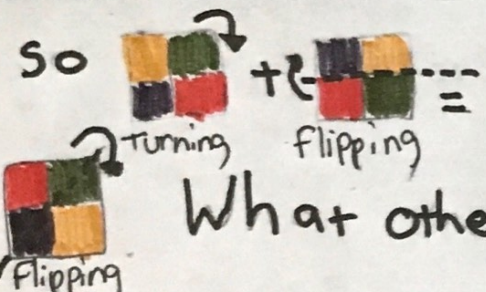 So + =
turning flipping
What othe
flipping